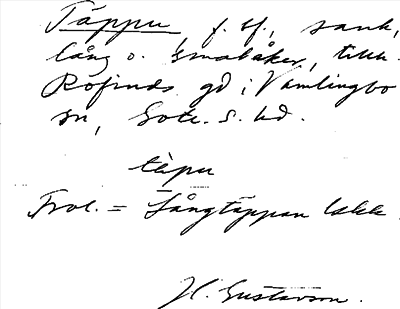 Täppu, f. sf., sank,
lång o. smal åker, tillh.
Rofinds gd i Vamlingbo
sn, Gotl. S. hd.
täpu
Trol. = Långtäppan
H. Gustavson.